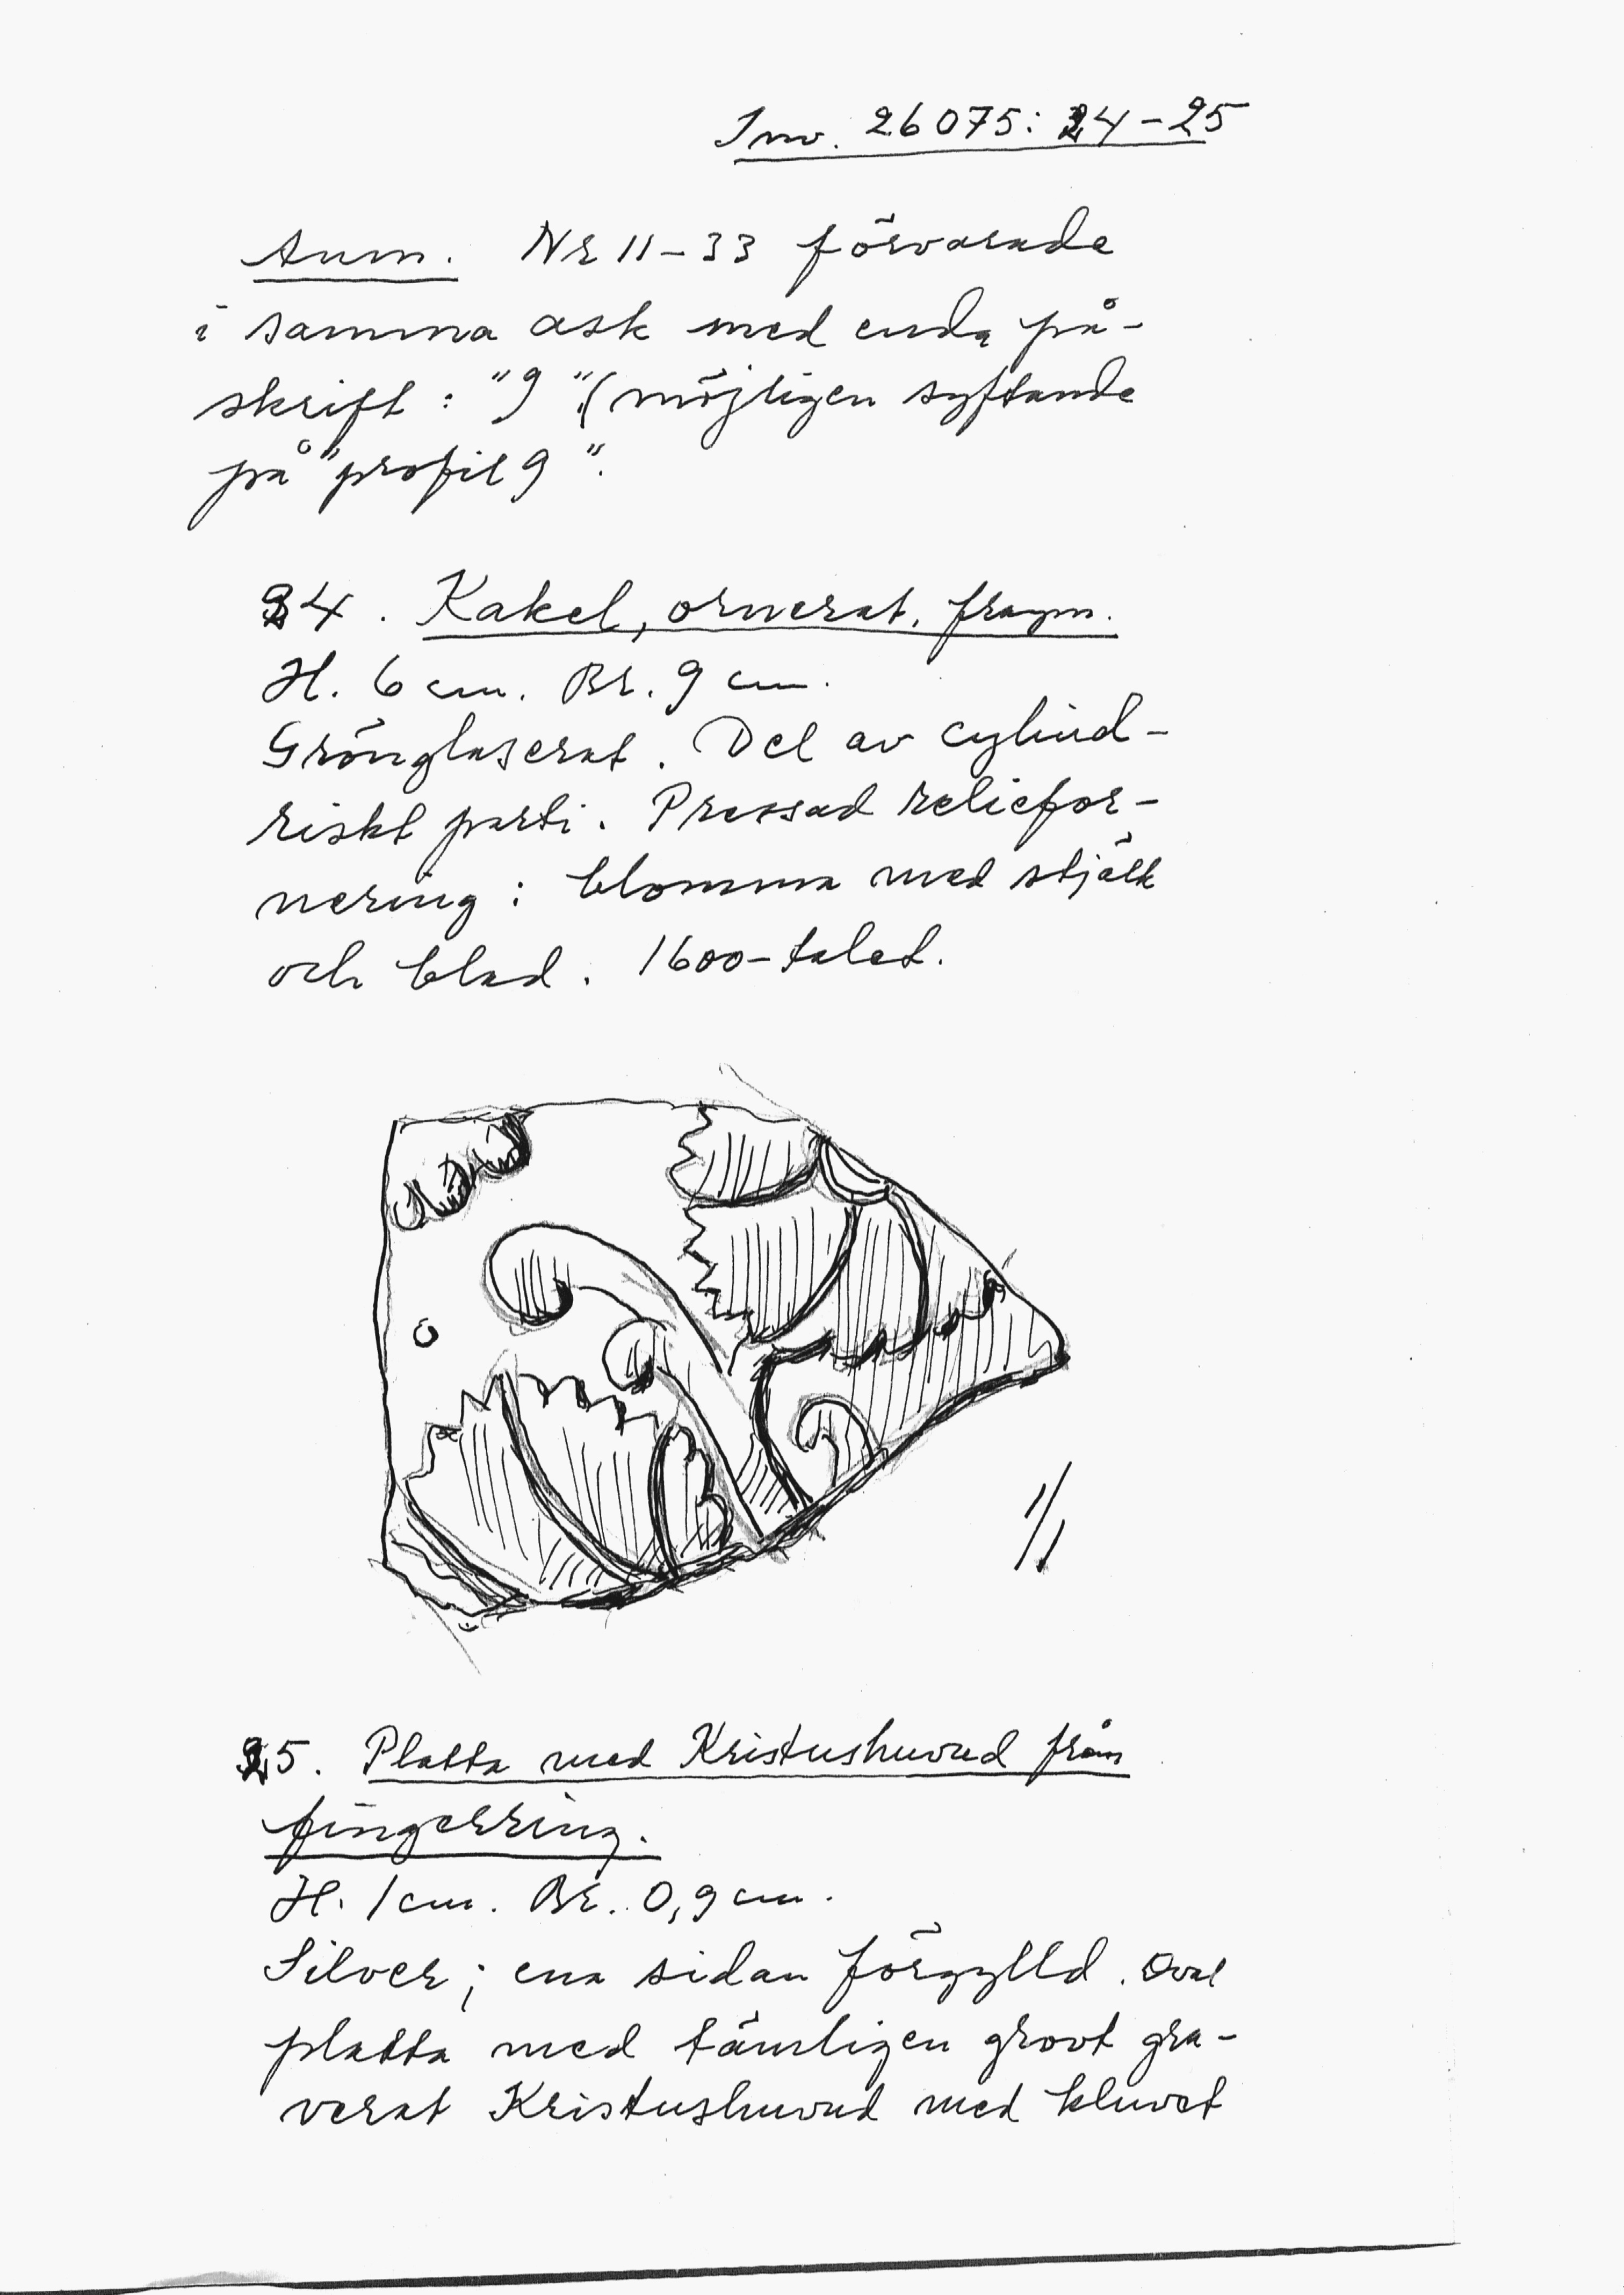 Inv. 26075: 24-25
Anm. Nr 11-33 förvarade
i samma ask med enda på-
skrift: "9" (möjligen syftande
på "profil 9".
24. Kakel, ornerat, fragm.
H. 6 cm. Br. 9 cm.
Grönglaserat. Del av cylind-
riskt parti. Pressad reliefor-
nering: blomma med stjälk
och blad. 1600-talet.
1/1
25. Platta med Kristushuvud från
fingerring.
H. 1 cm. Br. 0,9 cm.
Silver; ena sidan förgylld. Oval
platta med tämligen grovt gra-
verat Kristushuvud med kluvet